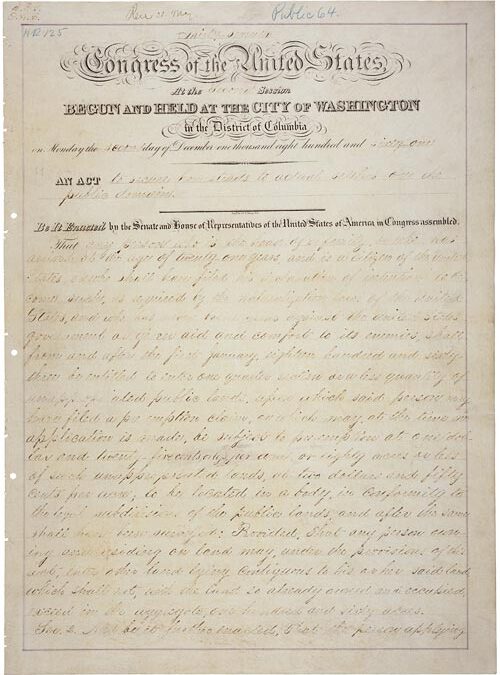 Public 64.
HR 125
Congress of the United States,
At the Second Session
BEGUN AND HELD AT THE CITY OF WASHINGTON
in the District of Columbia
on Monday the day of December one thousand eight hundred and sixty one
AN ACT to secure homesteads to actual settlers on the
public domain.
Be It Enacted by the Senate and House of Representatives of the United States of America in Congress assembled.
That any person who is the head of a family, or who has
arrived at the age of twenty one years, and is a citizen of the United
States, or who shall have filed his declaration of intention to be
come such, as required by the naturalization laws of the United
States, and who has never borne arms against the United States
government or given aid and comfort to its enemies, shall
from and after the first January, eighteen hundred and sixty
three be entitled to enter one quarter section or a less quantity of
unappropriated public lands, upon which said person may
have filed a preemption claim, or which may, at the time
application is made, be subject to preemption at one dol
lar and twenty-five cents, or less, per acre, or eighty acres or less
of such unappropriated lands, at two dollars and fifty
cents per acre, to be located in a body, in conformity to
the legal subdivisions of the public lands, and after the same
shall have been surveyed: Provided, That any person own
ing and residing on land may, under the provisions of this
act, enter other land lying contiguous to his or her said land,
which shall not, with the land so already owned and occupied,
exceed in the aggregate one hundred and sixty acres.
Sec. 2. And be it further enacted, That the person applying